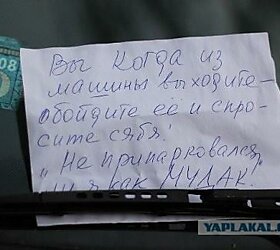 Вы когда из
машины выходите-
обойдите её и спро-
сите сябя!
"Не припарковался
ли я как МУДАК.
08
YAPLAKAL.COM